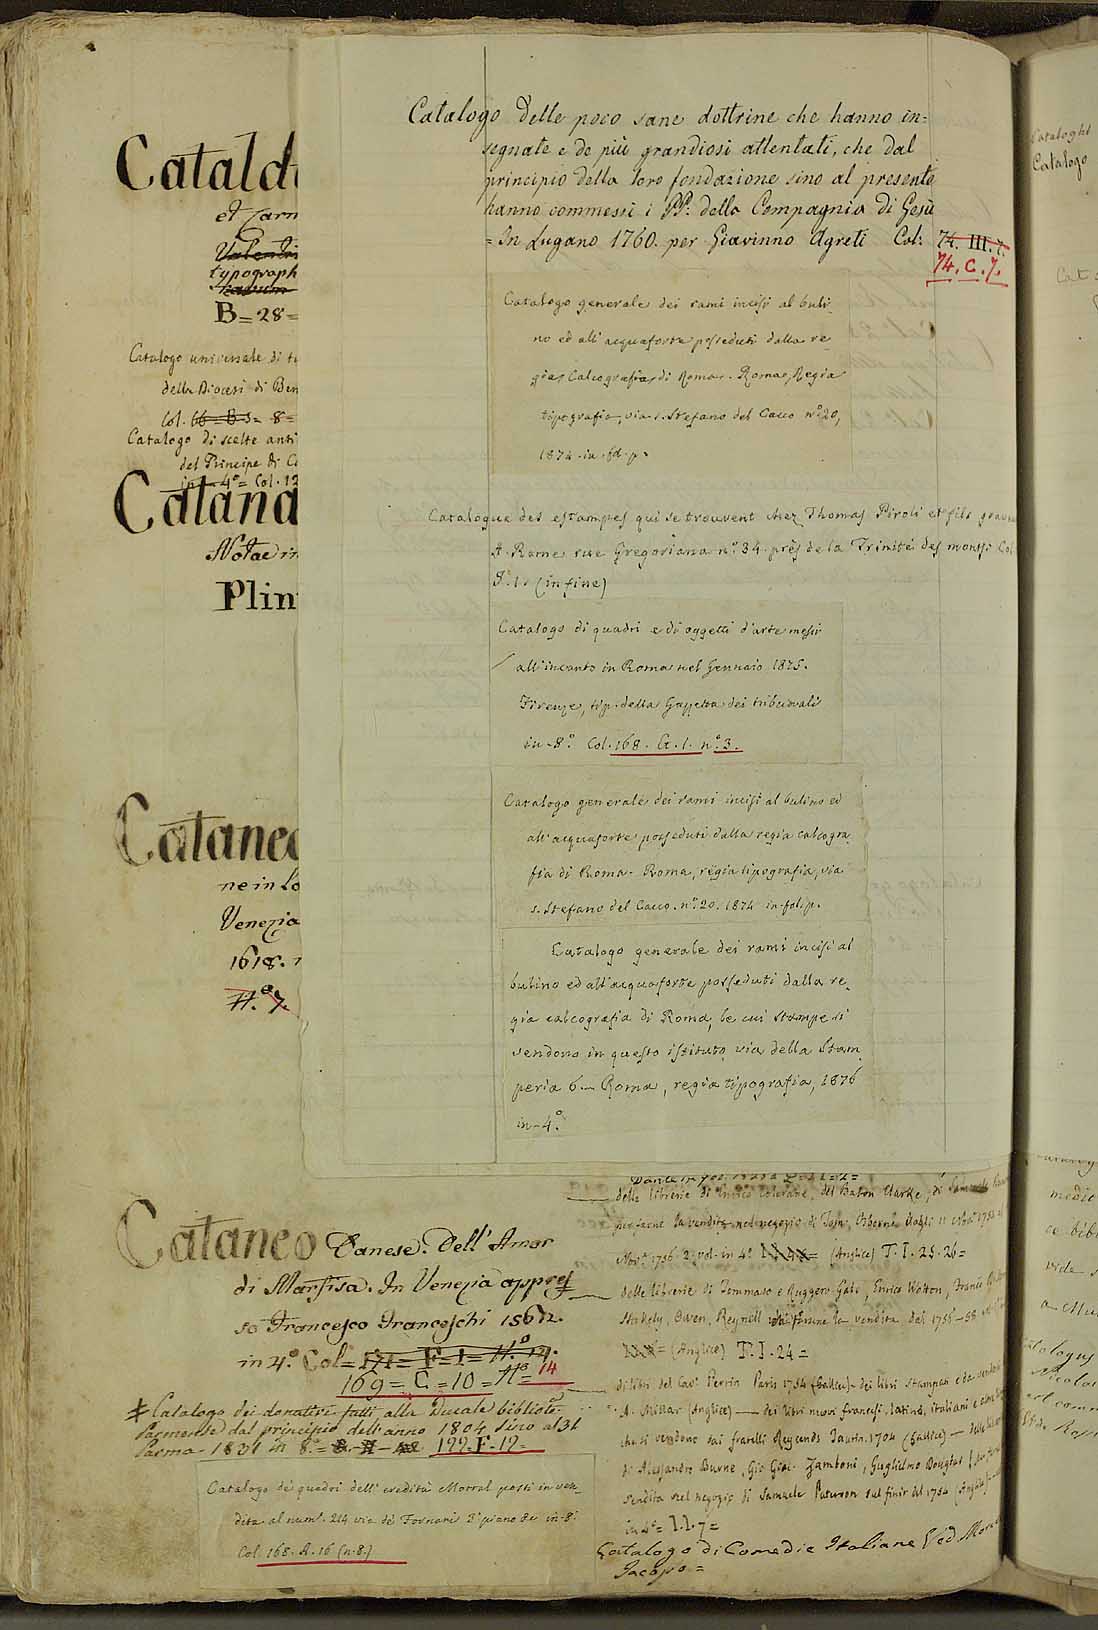 Catald
et Carm
Valentin
typograph
B = 28 =
Catalogo universale di tu
della Diocesi di Ben
Col. 66 = B 3 = 8 =
Catalogo di scelte anti
del Principe di C
in 4° = Col. 12
Catana
Notae in
Plin
Cataneo
ne in Lo
Venezia
1618.
N.° 7.
Catalogo delle poco sane dottrine che hanno in=
segnate e de più grandiosi attentati, che dal
principio della loro fondazione sino al presente
hanno commessi i PP: della Compagnia di Gesù
= In Lugano 1760. per Giavinno Agreti Col: 74. III. 7.
74. C. 7.
Catalogo generale dei rami incisi al buli-
no ed all'acquaforte posseduti dalla re-
gia Calcografia di Roma. Roma, Regia
tipografia, via s. Stefano del Cacco n.° 20,
1874 in fol. p.
Catalogue des estampes qui se trouvent chez Thomas Piroli et fils grave
A Rome rue Gregoriana n.° 34 près de la Trinité des monts. Col
(in fine)
Catalogo di quadri e di oggetti d'arte messi
all'incanto in Roma nel Gennaio 1875.
Firenze, tip. della Gazzetta dei tribunali
in-8.° Col. 168. A. 1. n.° 3.
Catalogo generale dei rami incisi al bulino ed
all'acquaforte posseduti dalla regia calcogra
fia di Roma - Roma, regia tipografia, via
s. Stefano del Cacco. n.° 20. 1874 in-fol. p.
Catalogo generale dei rami incisi al
bulino ed all'acquaforte posseduti dalla re-
gia calcografia di Roma, le cui stampe si
vendono in questo istituto via della Stam
peria 6 — Roma, regia tipografia, 1876
in-4.°
Cataneo Danese. Dell'Amor
di Marfisa. In Venezia appres
so Francesco Franceschi 1562.
in 4.° Col = 171 = F = 1 = N.° 14.
169 = C = 10 = N° = 14
Catalogo dei donativi fatti alla Ducale bibliote
Parmense dal principio dell'anno 1804 sino al 31
Parma - 1831 in 8.° = 122. F. 12 =
Catalogo de' quadri dell'eredità Morral posti in ven-
dita al num.° 214 via de' Fornari 2° piano &c in-8.
Col. 168. A. 16 (n. 8.)
delle librerie di Enrico Coleraine, del Baron Clarke, di Samuele
per farne la vendita nel negozio di Tom. Osborne dagli 11
2. vol. in 4. (Anglice) T. I. 25. 26 =
delle librerie di Tommaso e Ruggero Gale, Enrico Wotton, Francis
Stukely, Owen, Reynell per farne la vendita del 1756-58
= (Anglice) T. I. 24 =
di libri del Cav. Perrin Paris 1754 (Gallice) - dei libri stampati e da vendersi
A. Millar (Anglice) — dei libri nuovi francesi, latini, italiani e
che si vendono dai fratelli Reycends Taurin. 1704 (Gallice) —
di Alessandro Burne, Gio Giac. Zamboni, Guglielmo Douglas
vendita nel negozio di Samuele Paterson sul finir del 1754 (Anglice)
in 4° = I. I. 7 =
Catalogo di Comedie Italiane Ved. More
Jacopo =
Cataloghi
Catalogo
Cat
medic
ce bibl
vide